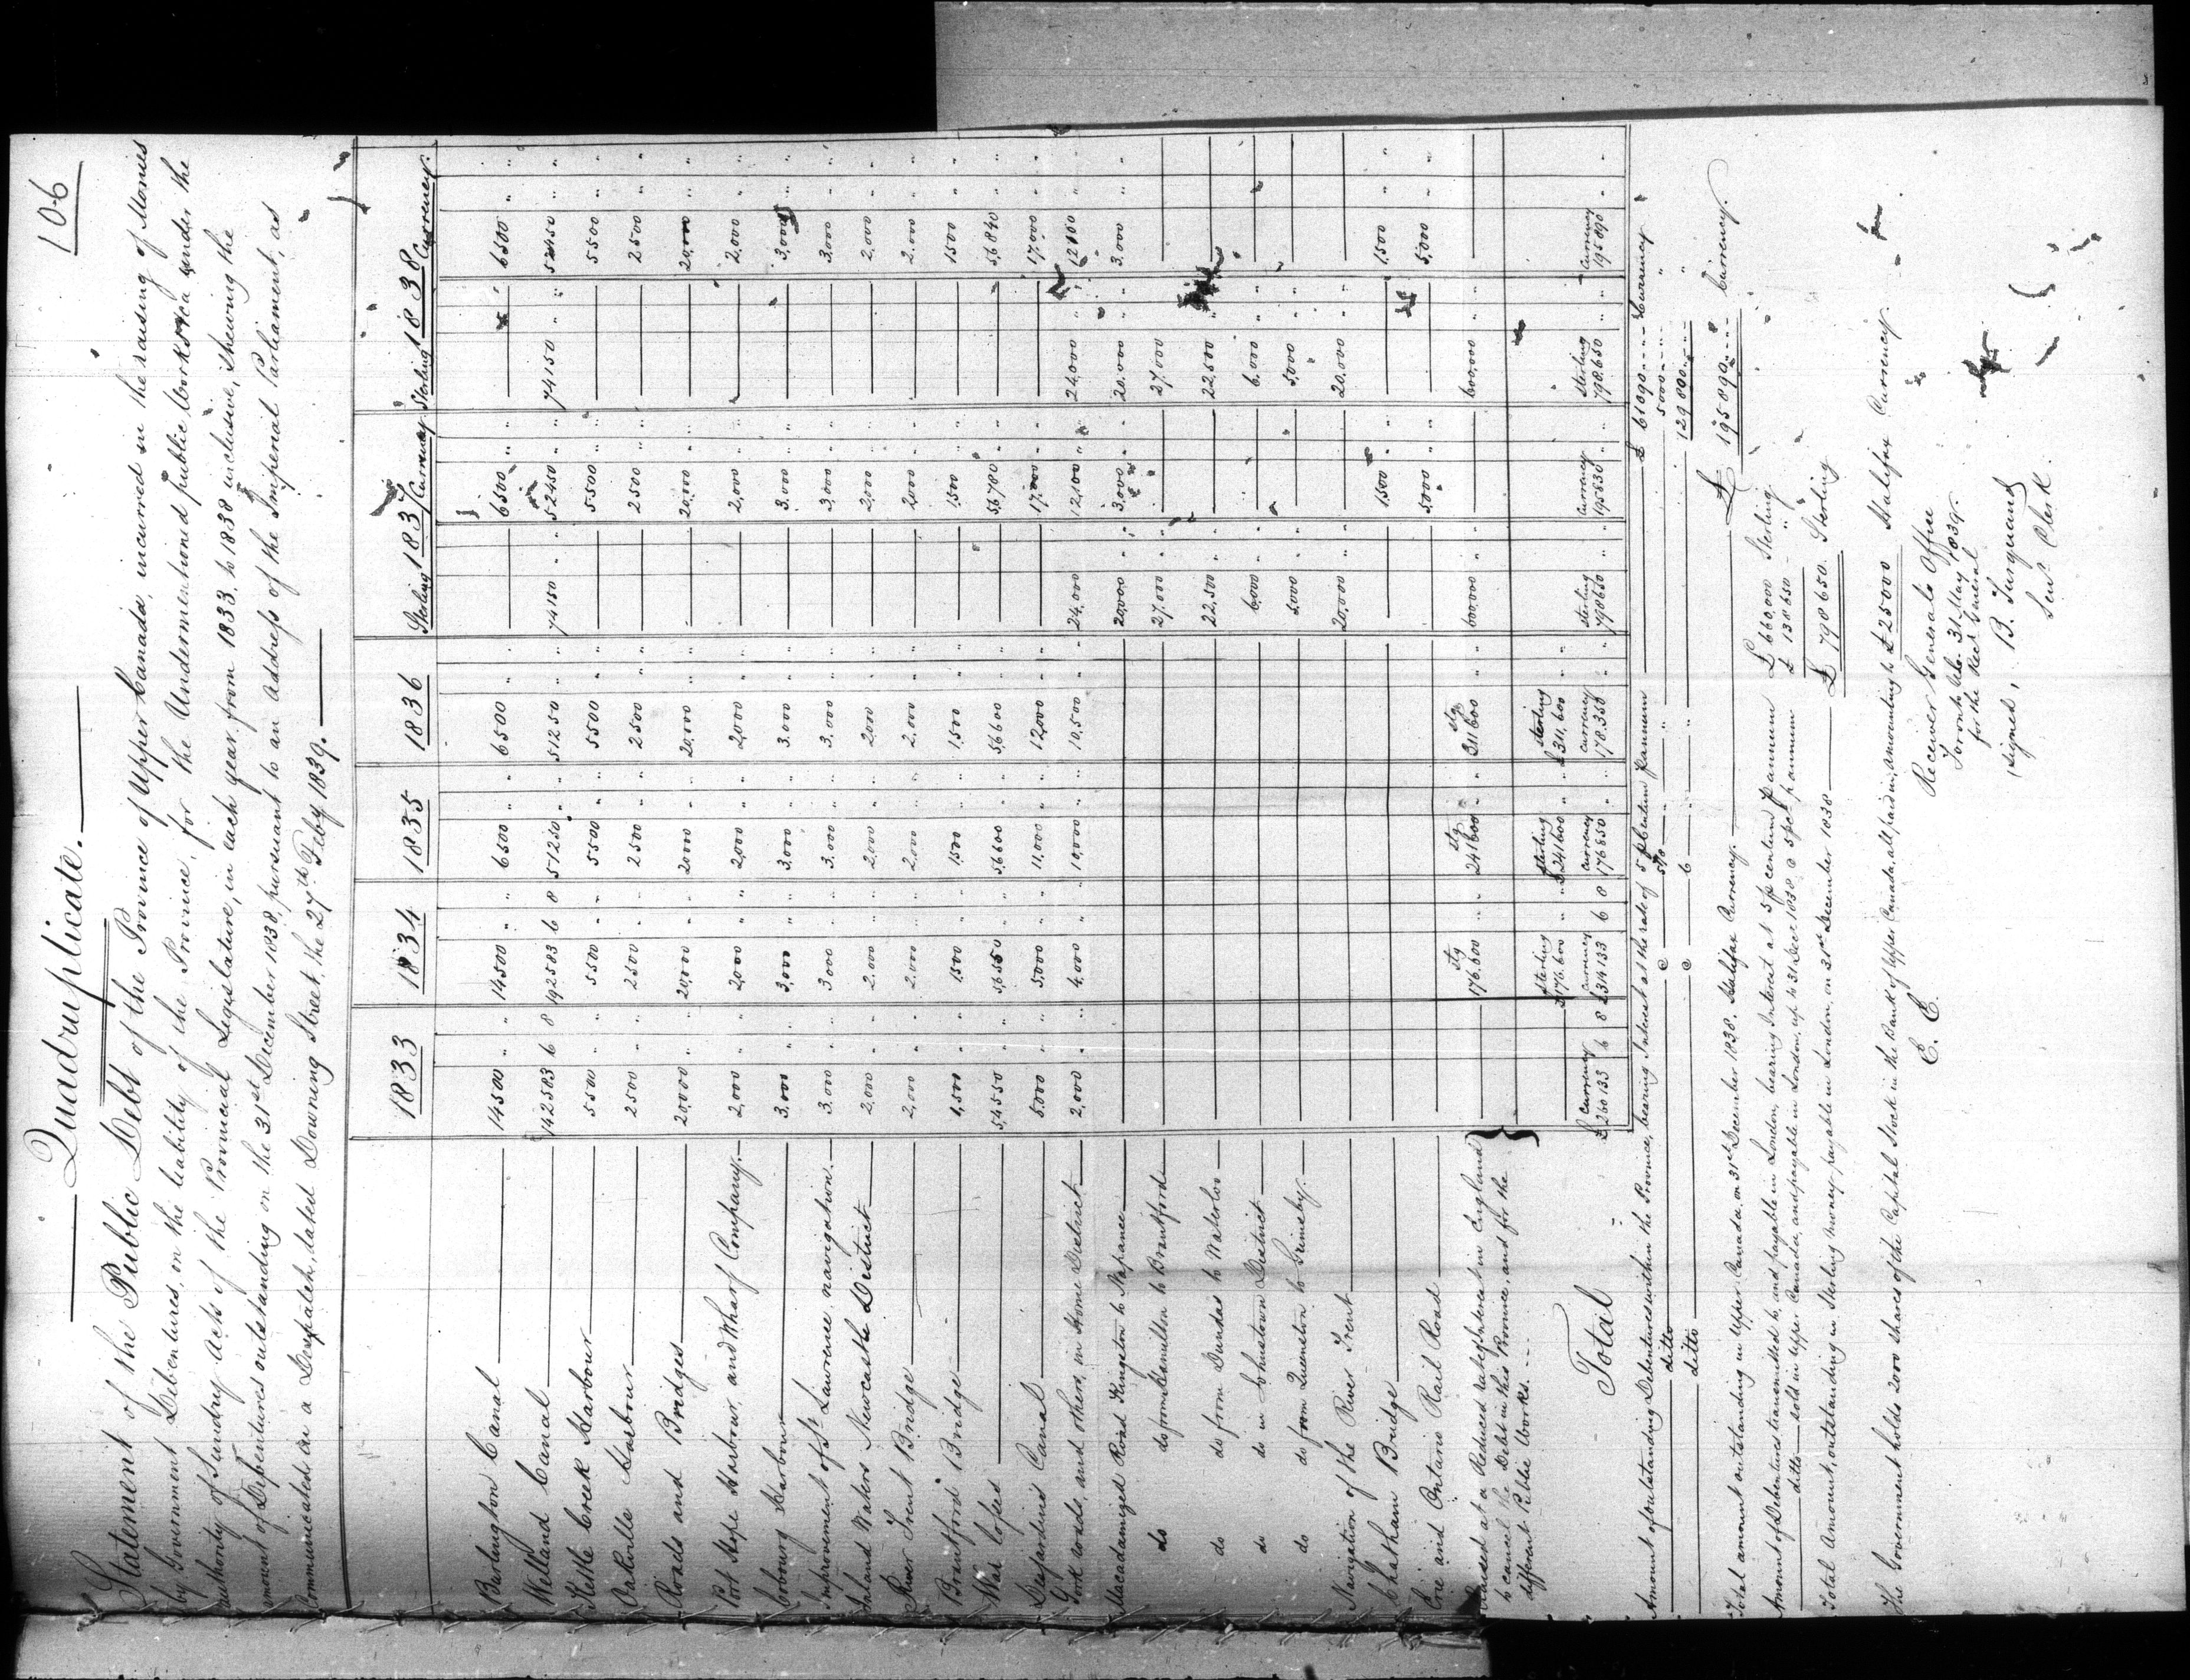 106
Quadruplicate.
Statement of the Public Debt of the Province of Upper Canada, incurred in the raising of Monies
by Government Debentures, on the liability of the Province, for the Undermentioned public Works &ca under the
authority of Sundry Acts of the Provincial Legislature, in each year from 1833, to 1838 inclusive, shewing the
amount of Debentures outstanding on the 31st December 1838, pursuant to an Address of the Imperial Parliament, as
Communicated in a Despatch, dated Downing Street, the 27th Feby 1839.
1833 1834 1835 1836 Sterling 1837 Currency Sterling 1838 Currency
Burlington Canal 14500 " " 14500 " " 6500 " " 6500 " " — 6500 " " — 6500 " "
Welland Canal 142583 6 8 192583 6 8 51250 " " 51250 " " 74150 " " 52450 " " 74150 " " 52450 " "
Kettle Creek Harbour 5500 " " 5500 " " 5500 " " 5500 " " — 5500 " " — 5500 " "
Oakville Harbour 2500 " " 2500 " " 2500 " " 2500 " " — 2500 " " — 2500 " "
Roads and Bridges 20,000 " " 20,000 " " 20000 " " 20,000 " " — 20,000 " " — 20,000 " "
Port Hope Harbour, and Wharf Company. 2,000 " " 2,000 " " 2,000 " " 2,000 " " — 2,000 " " — 2,000 " "
Cobourg Harbour 3,000 " " 3,000 " " 3,000 " " 3.000 " " — 3.000 " " — 3,000 " "
Improvement of St Lawrence navigation. 3.000 " " 3000 " " 3.000 " " 3.000 " " — 3,000 " " — 3.000 " "
Inland Waters Newcastle District 2,000 " " 2.000 " " 2,000 " " 2,000 " " — 2,000 " " — 2.000 " "
River Trent Bridge 2,000 " " 2.000 " " 2,000 " " 2.000 " " — 2,000 " " — 2.000 " "
Brantford Bridge 1,500 " " 1500 " " 1500 " " 1,500 " " — 1,500 " " — 1500 " "
War losses 5,4550 " " 5,6550 " " 5,6600 " " 5,6600 " " — 5,6780 " " — 5,6840 " "
Desjardins Canal 5000 " " 5,000 " " 11,000 " " 12,000 " " — 17,000 " " — 17,000 " "
York roads, and others, in Home District 2,000 " " 4,000 " " 10,000 " " 10,500 " " 24,000 " " 12,100 " " 24,000 " " 12100 " "
Macadamized Road Kingston to Napanee 20,000 " " 3,000 " " 20.000 " " 3.000 " "
do do from Hamilton to Brantford 27.000 " " — 27.000 " " —
do do from Dundas to Waterloo 22,500 " " — 22,500 " " —
do do in Johnstown District 6,000 " " — 6.000 " " —
do do from Queenston to Grimsby. 5,000 " " — 5,000 " " —
Navigation of the River Trent 20,000 " " — 20.000 " " —
Chatham Bridge — 1,500 " " — 1,500 " "
Erie and Ontario Rail Road — 5,000 " " — 5,000 " "
Raised at a Reduced rate of Interest in England
to cancel the Debt in this Province, and for the
different Public Works. stg 176.600 " " stg 241600 " " stg 311600 " " 600,000 " " — 600,000 " " —
sterling £176.600 " " sterling £241600 " " sterling £311,600 " "
Total currency £260133 6 8 currency £314133 6 8 currency 176850 " " currency 178,350 " " sterling 798650 " " currency 195030 " " sterling 798.650 " " currency 195090 " "
Amount of outstanding Debentures within the Province, bearing Interest at the rate of 5 per Centum p annum £ 61090 Currency
ditto @ 5½ " " 5000 "
ditto @ 6 " " 129000 "
Total amount outstanding in Upper Canada, on 31st December 1838. Halifax Currency £ 195090 Currency.
Amount of Debentures transmitted to, and payable in London, bearing Interest at 5 p centum p annum £ 660,000 Sterling
ditto sold in Upper Canada, and payable in London, up to 31 Decr 1838 @ 5 p ct p annum £ 138650 "
Total Amount, outstanding in Sterling money, payable in London, on 31st December 1838 £ 798650. Sterling
The Government holds 2000 shares of the Capital Stock in the Bank of Upper Canada, all paid in, amounting to £25000 Halifax Currency.
E. E.
Receiver Generals Office
Toronto 31 May 1839
for the Recr General
(signed, B. Turquand
Senr Clerk